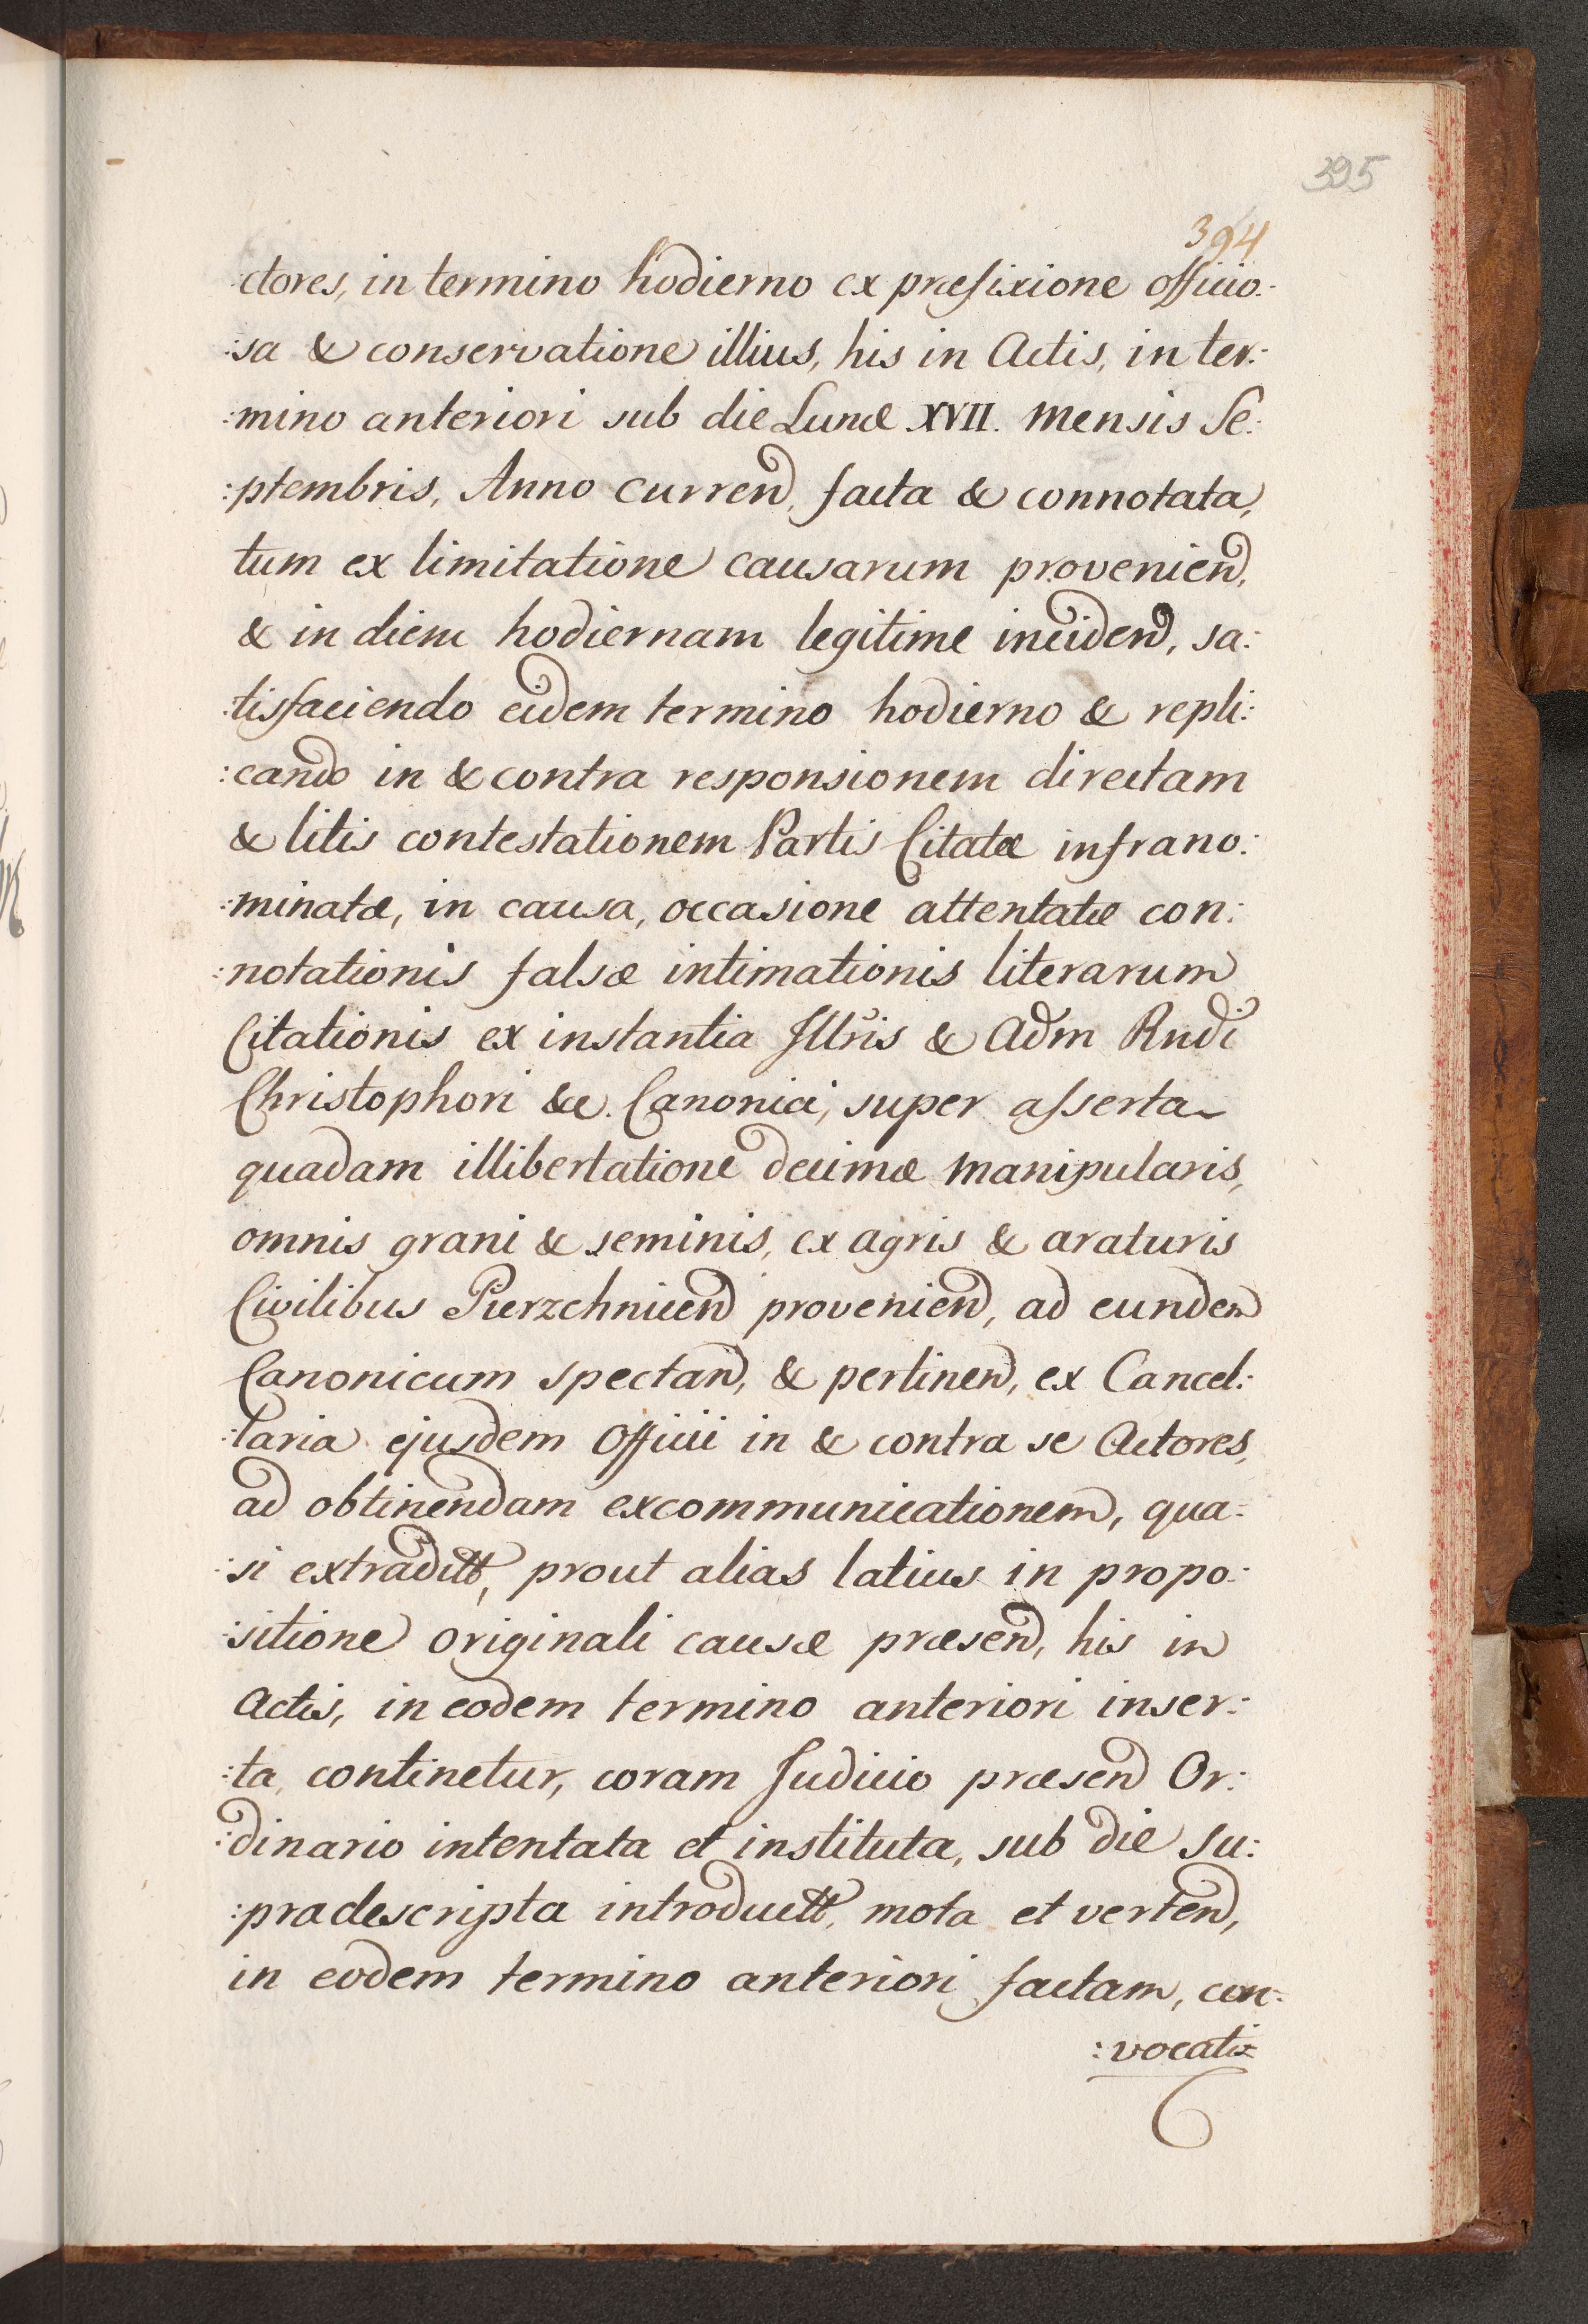 395
394
ctores, in termino hodierno ex præfixione officio:
:sa & conservatione illius, his in Actis, in ter:
:mino anteriori sub die Lunæ XVII. Mensis Se:
:ptembris, Anno curren, facta & connotata,
tum ex limitatione causarum provenien,
& in diem hodiernam legitime inciden, sa:
:tisfaciendo eidem termino hodierno & repli:
:cando in & contra responsionem directam
& litis contestationem Partis Citatæ infrano:
:minatæ, in causa, occasione attentatæ con:
:notationis falsæ intimationis literarum
Citationis ex instantia Illris & Adm Rndi
Christophori &c. Canonici, super asserta
quadam illibertatione decimæ manipularis,
omnis grani & seminis, ex agris & araturis
Civilibus Pierzchnicen provenien, ad eundem
Canonicum spectan, & pertinen, ex Cancel:
:laria ejusdem Officii in & contra se Actores,
ad obtinendam excommunicationem, qua:
:si extraditt, prout alias latius in propo:
:sitione originali causæ præsen, his in
Actis, in eodem termino anteriori inser:
:ta, continetur, coram Judicio præsen Or:
:dinario intentata et instituta, sub die su:
:pradescripta introductt, mota et verten,
in eodem termino anteriori factam, con:
:vocatis